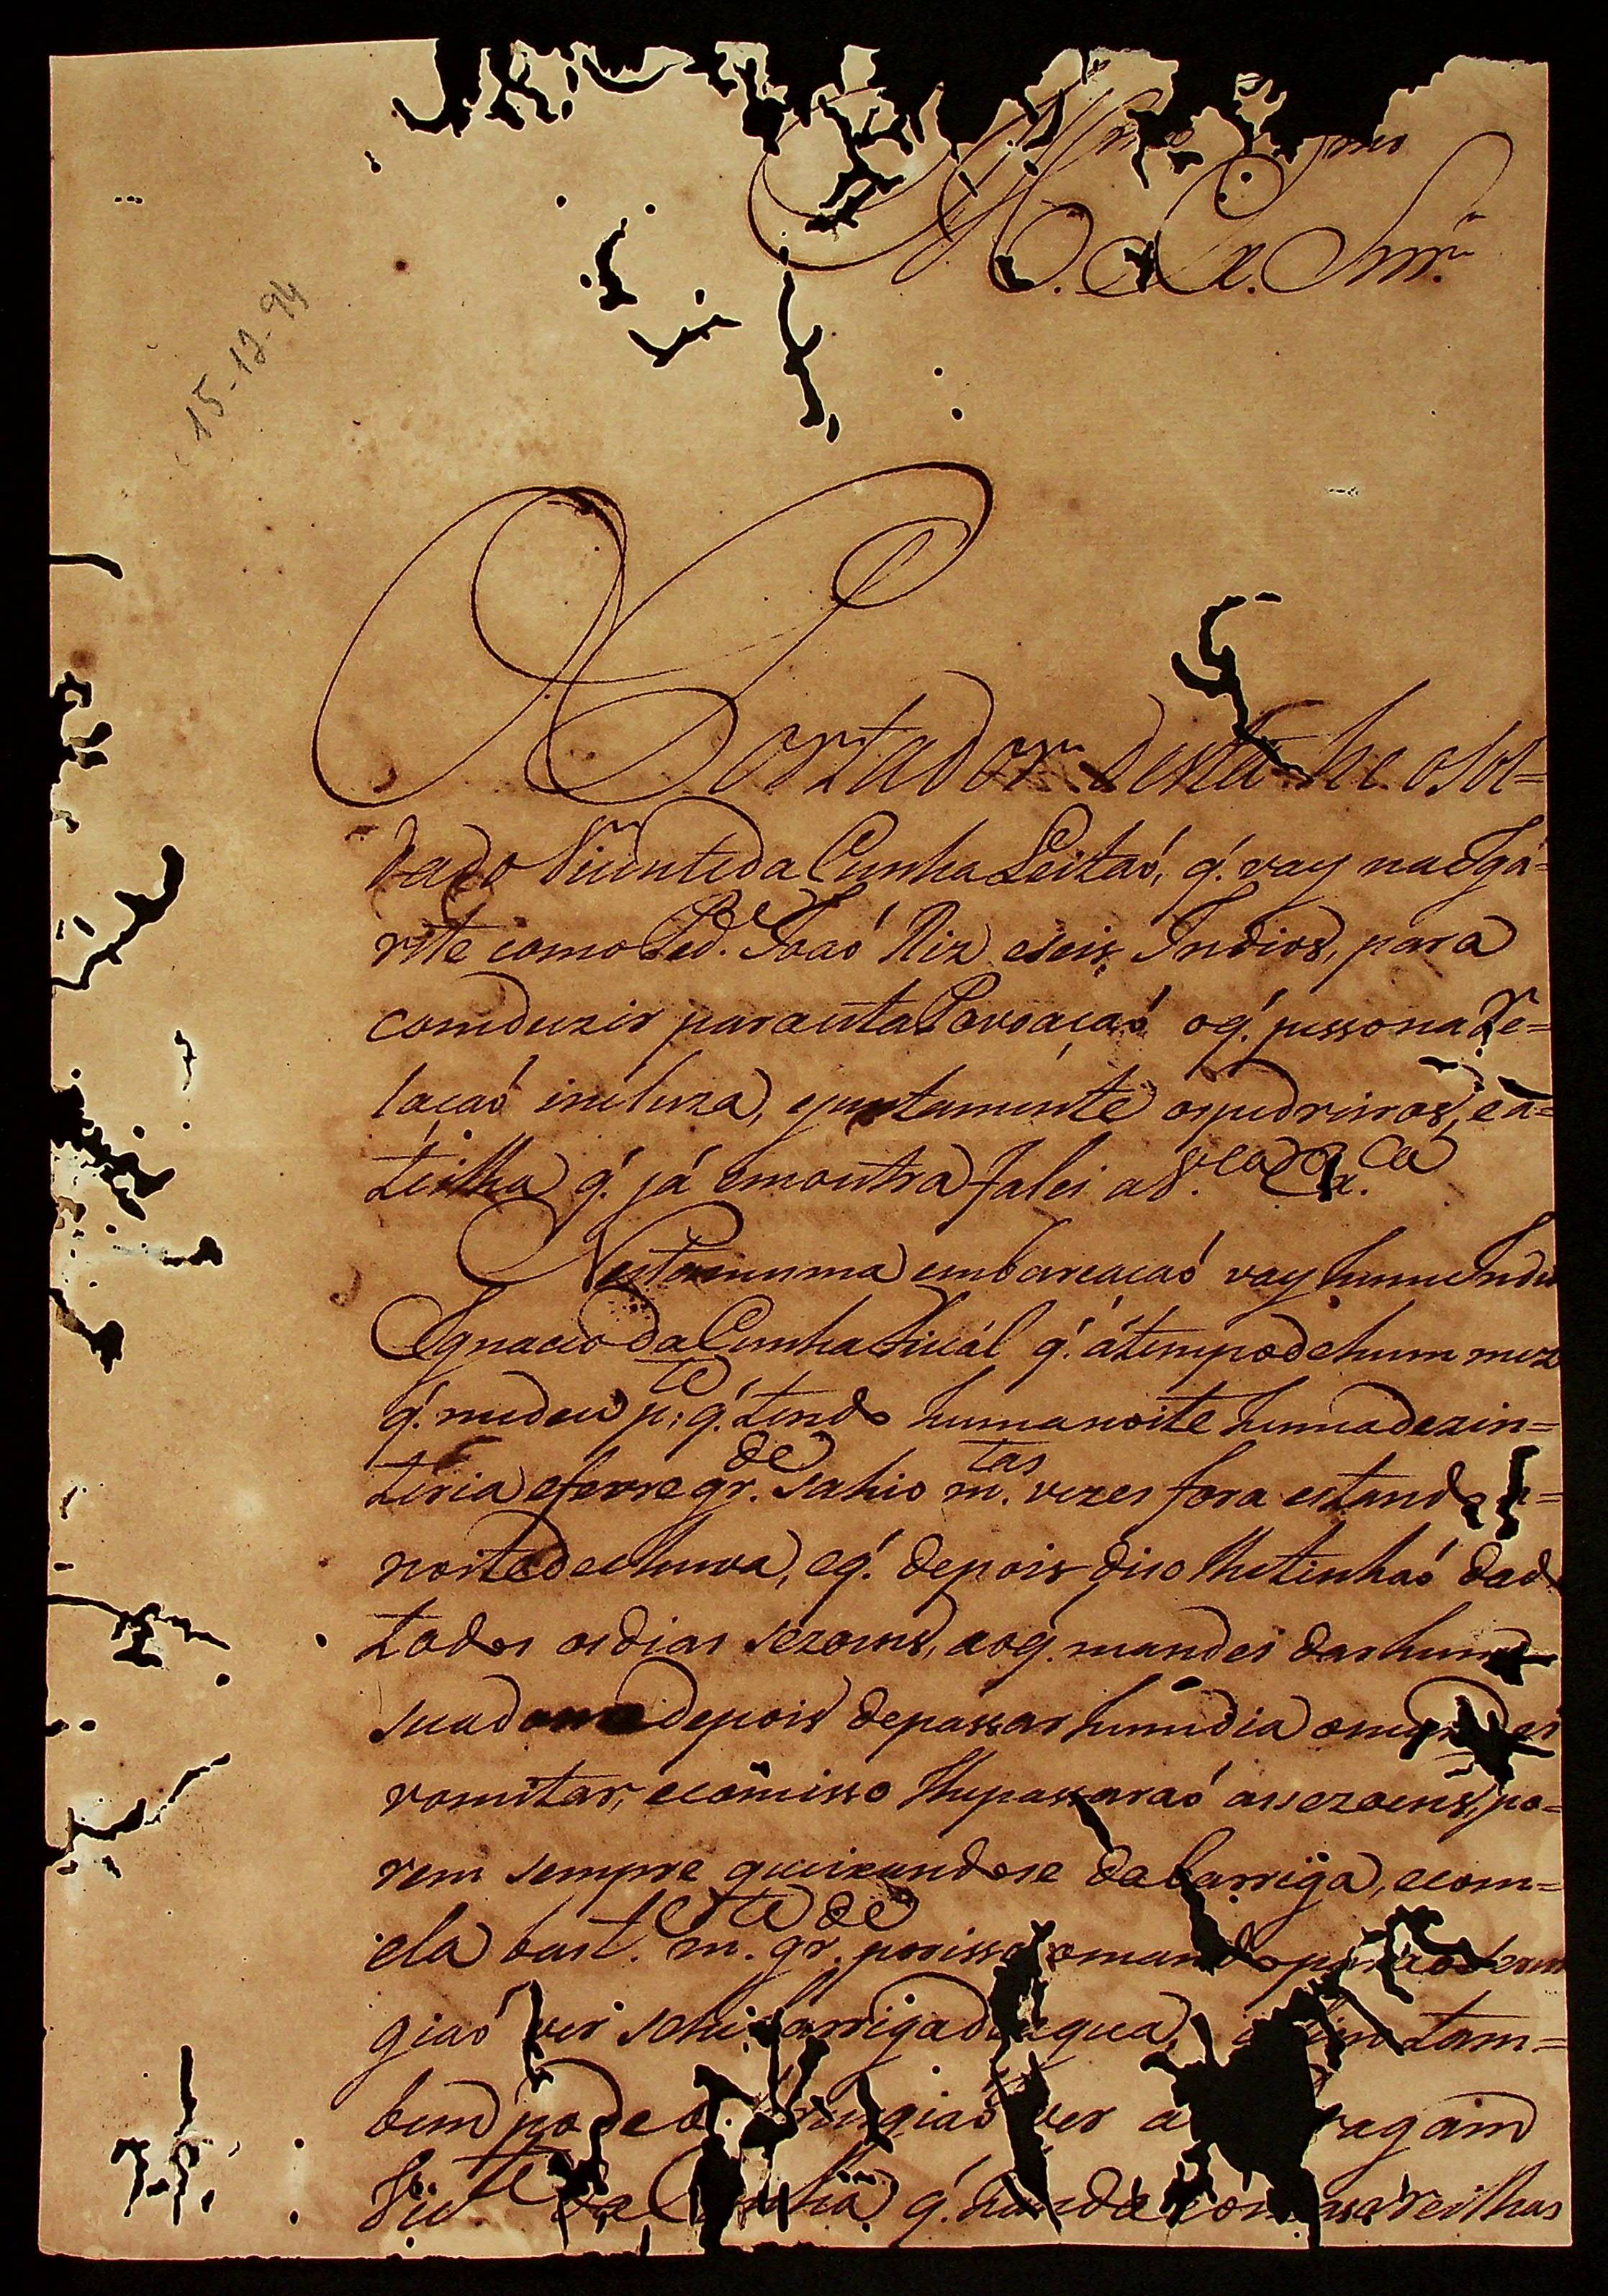 Ill.mo Ex.mo Snr.
15-12-94
O Portador desta he o Sol=
dado Vicente da Cunha Leitaó, q́. vay na Iga=
rite com o Sold.e Joaó Niz e seis Indios, para
comduzir para esta Povoacaó o q́. pesso na Re=
lacaó incluza, e juntamente os pedreiros, e a
telha q́. já em outra falei a V.ca Ex.ca
Nesta mesma embarcacaó vay hum Indio
Ignacio da Cunha q́. á tempo de hum mez
q́. me deu p.te q́. tendo huma noite huma dezin=
teria e febre gr.de sahio m.tas vezes fora estando a
noite de chuva, e q́. depois diso lhe tinhaó dado
todos os dias sezoens, ao q. mandei dar hum
suador depois de passar hum dia o mandei
vomitar, e com isso lhe passaraó as sezoens, po=
rem sempre queixandose da barriga, e com=
ela bast.e m.ta gr.de por isso o mando para o Serur
giaó ver se he barriga de agua, asim tam=
bem pode o Serurgiaó ver a
Vic.te da Cunha q́.